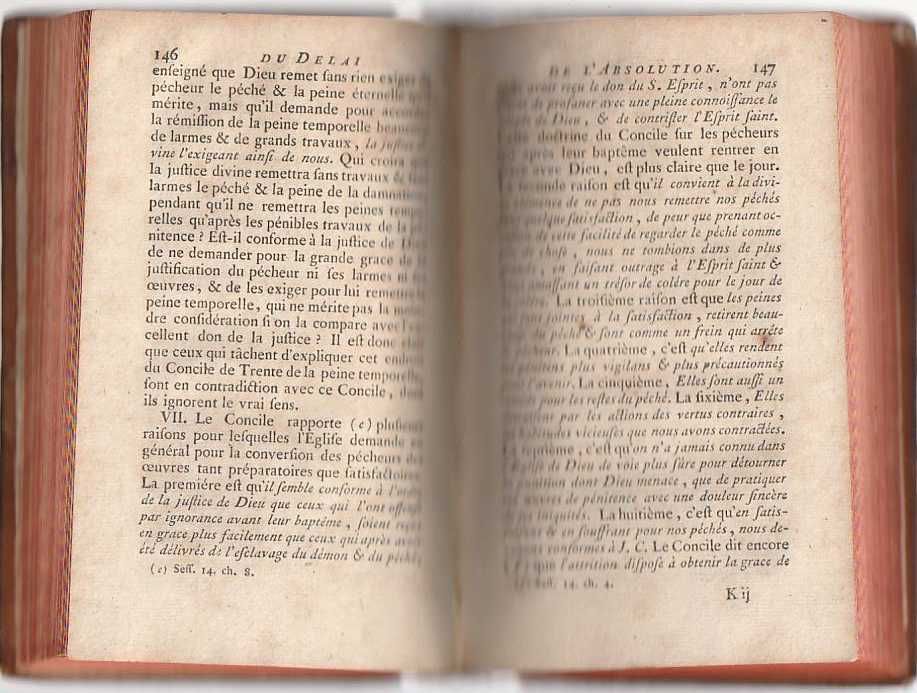 146 DU DELAI
enſeigné que Dieu remet ſans rien exiger
pécheur le péché & la peine éternelle
mérite, mais qu'il demande pour accorder
la rémiſſion de la peine temporelle beaucoup
de larmes & de grands travaux, la juſtice
vine l'exigeant ainſi de nous. Qui croira
la juſtice divine remettra ſans travaux &
larmes le péché & la peine de la damnation
pendant qu'il ne remettra les peines tempo
relles qu'après les pénibles travaux de la pé
nitence ? Eſt-il conforme à la juſtice de Dieu
de ne demander pour la grande grace de
juſtification du pécheur ni ſes larmes ni
œuvres, & de les exiger pour lui remettre
peine temporelle, qui ne mérite pas la moin
dre conſidération ſi on la compare avec
cellent don de la juſtice ? Il eſt donc clair
que ceux qui tâchent d'expliquer cet endroit
du Concile de Trente de la peine temporelle,
ſont en contradiction avec ce Concile,
ils ignorent le vrai ſens.
VII. Le Concile rapporte (e) pluſieurs
raiſons pour leſquelles l'Égliſe demande en
général pour la converſion des pécheurs des
œuvres tant préparatoires que ſatisfactoires.
La premiére eſt qu'il ſemble conforme à l'ordre
de la juſtice de Dieu que ceux qui l'ont offenſé
par ignorance avant leur baptême, ſoient reçus
en grace plus facilement que ceux qui après avoir
été délivrés de l'eſclavage du démon & du péché,
(e) Seſſ. 14. ch. 8.
DE L'ABSOLUTION. 147
avoir reçu le don du S. Eſprit, n'ont pas
de profaner avec une pleine connoiſſance le
de Dieu, & de contriſter l'Eſprit ſaint.
doctrine du Concile ſur les pécheurs
après leur baptême veulent rentrer en
avec Dieu, eſt plus claire que le jour.
ſeconde raiſon eſt qu'il convient à la divi-
clémence de ne pas nous remettre nos péchés
quelque ſatisfaction, de peur que prenant oc-
de cette facilité de regarder le péché comme
de choſe, nous ne tombions dans de plus
grands, en faiſant outrage à l'Eſprit ſaint &
amaſſant un tréſor de colére pour le jour de
La troiſiéme raiſon eſt que les peines
ſont jointes à la ſatisfaction, retirent beau-
du péché & ſont comme un frein qui arrête
pécheur. La quatriéme, c'eſt qu'elles rendent
pénitens plus vigilans & plus précautionnés
l'avenir. La cinquiéme, Elles ſont auſſi un
pour les reſtes du péché. La ſixiéme, Elles
par les actions des vertus contraires,
habitudes vicieuſes que nous avons contractées.
ſeptiéme, c'eſt qu'on n'a jamais connu dans
l'Égliſe de Dieu de voie plus ſûre pour détourner
punition dont Dieu menace, que de pratiquer
œuvres de pénitence avec une douleur ſincère
de ſes iniquités. La huitiéme, c'eſt qu'en ſatis-
& en ſouffrant pour nos péchés, nous de-
conformes à J. C. Le Concile dit encore
(f) que l'attrition diſpoſe à obtenir la grace de
Seſſ. 14. ch. 4.
K ij